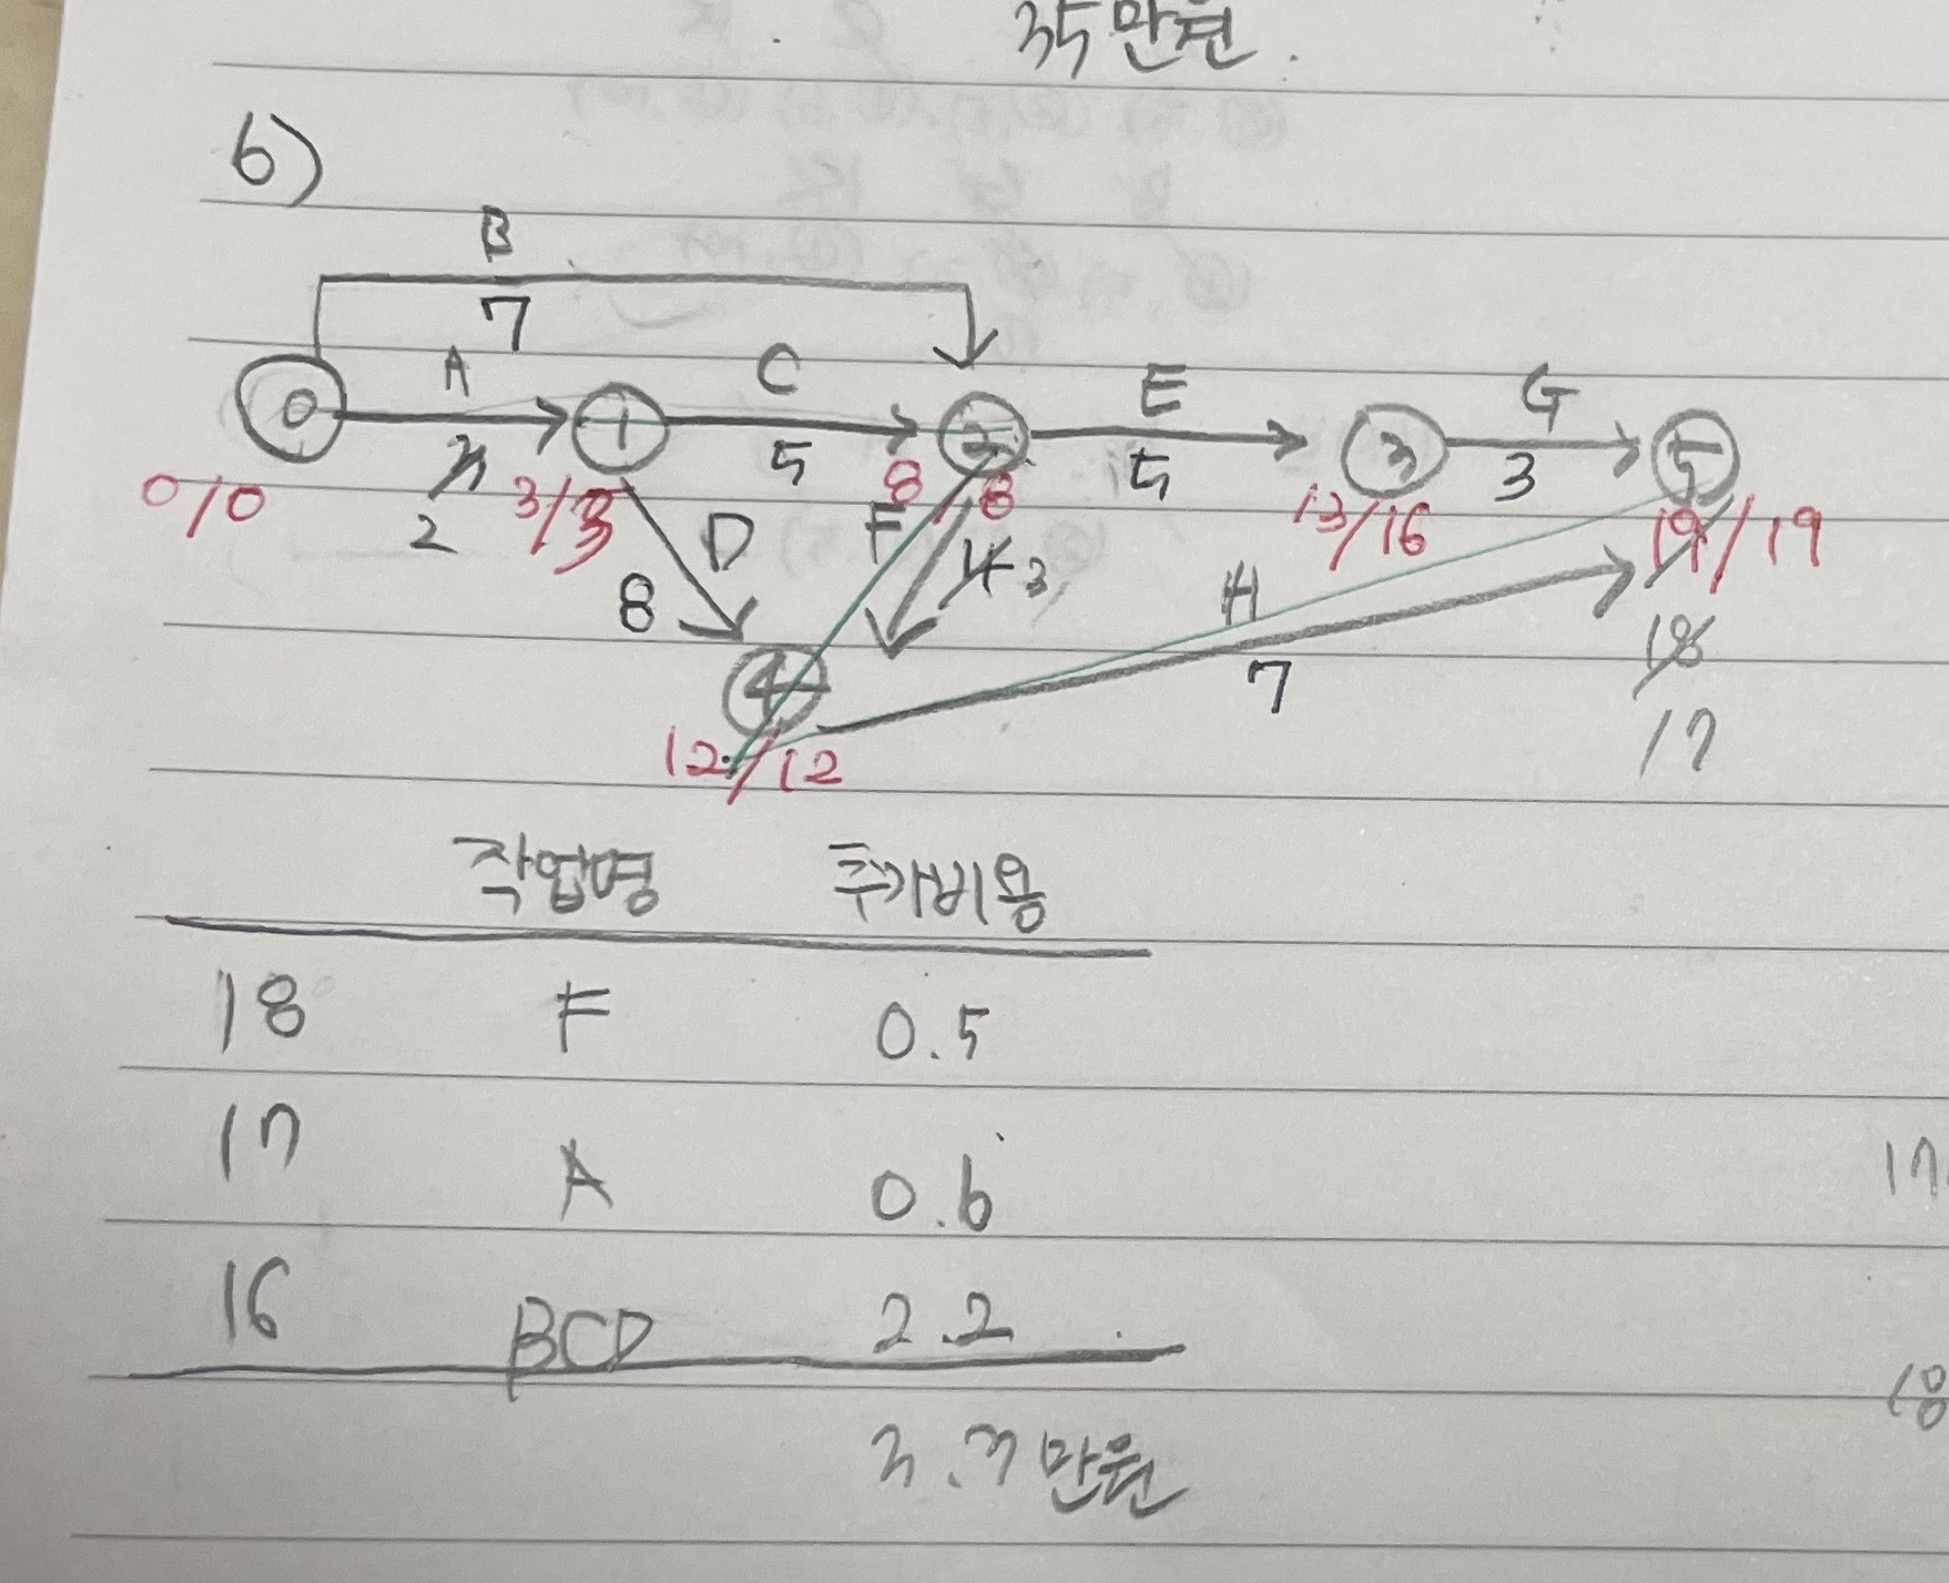 35만원.
6)
B
7
A C E G
0 1 2 3 5
3 5 5 3
0/0 2 3/3 8/8 13/16 19/19
D F 4 3
8 H
18
4 7
12/12 17
작업명 추가비용
18 F 0.5
17 A 0.6
17
16 BCD 2.2
18
3.3만원